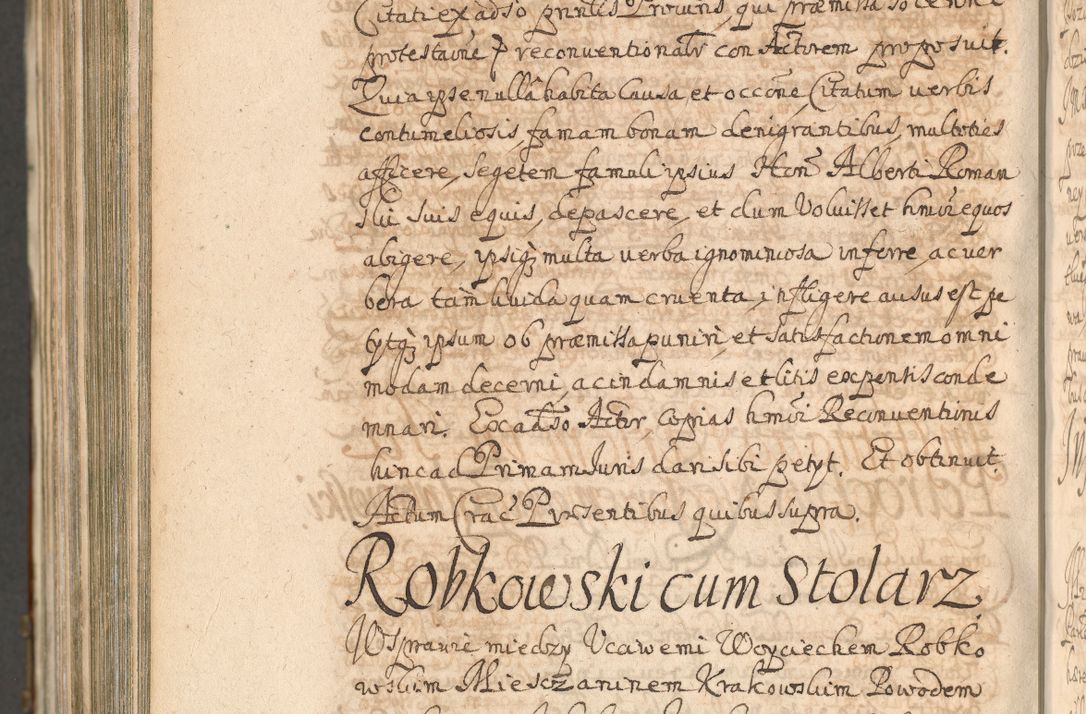 Citati ex adso pnntis Provins, qui præmissa so
protestaõne, reconventionalr con Actorem proposuit.
Quia ipse nullâ habita causa et occõne Citatum verbis
contumeliosis, famam bonam denigrantibus, multoties
afficere, segetem famuli ipsius Hon Alberti Roman
ski suis equis, depascere, et dum voluisset hmõi equos
abigere, ipsiq; multa verba ignominiosa inferre, ac ver
bera tam livida quam cruenta, infligere ausus est pe
tytq; ipsum ob præmissa puniri, et satisfactionem omni
modam decerni, ac in damnis et litis expensis conde
mnari. Ex adso Actor, copias hmõi Reconventionis
hinc ad Primam Iuris dari sibi petyt. Et obtinuit.
Actum Crac Præsentibus quibus supra.
Robkowski cum Stolarz.
W Sprawie miedzy Ucawemi Woyciechem Robko
wskim Mieszczaninem Krakowskim Powodem